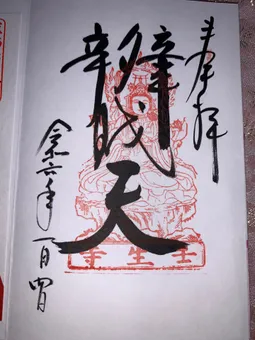 奉拝
辨戝天
令和六年一月四日
壬生寺